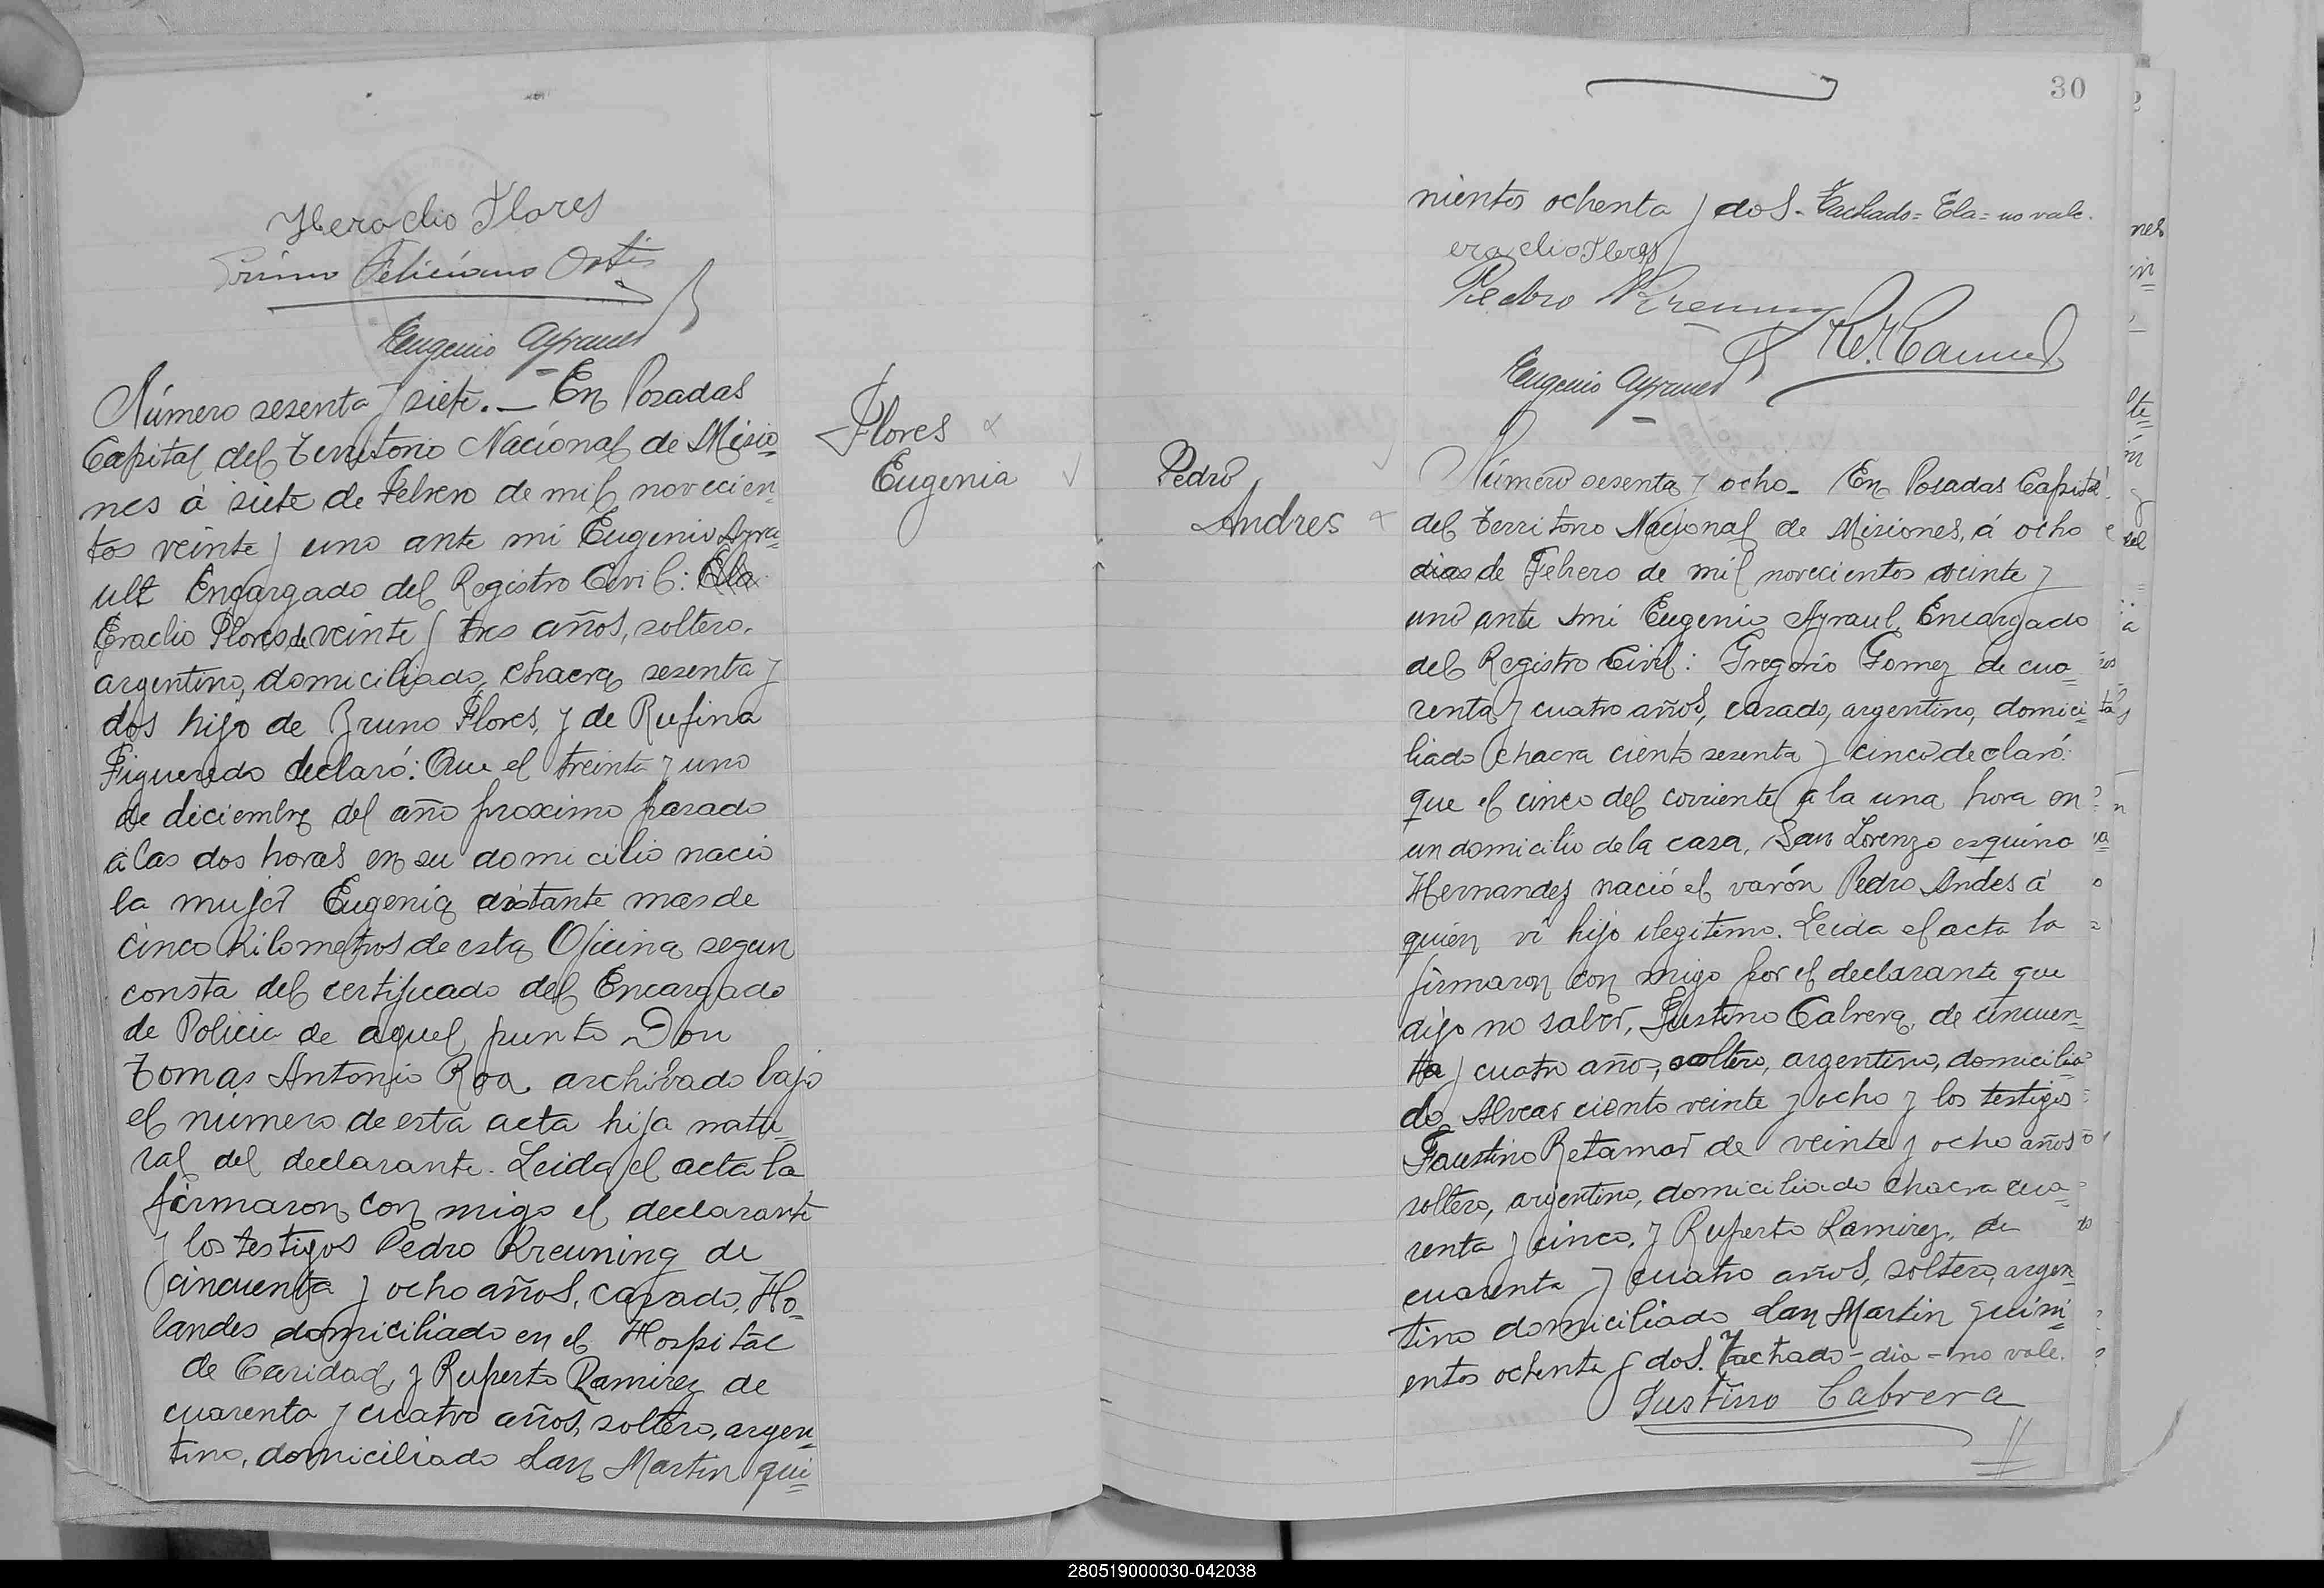 Heraclio Flores
Primo Feliciano Ortis
Eugenio Ayrault
Número sesenta y siete. — En Posadas
Capital del Territorio Nacional de Misio=
nes á siete de Febrero de mil novecien=
tos veinte y uno ante mi Eugenio Ayra=
ult Encargado del Registro Civil: Ela
Eraclio Flores de veinte y tres años, soltero.
argentino, domiciliado, chacra sesenta y
dos hijo de Bruno Flores, y de Rufina
Figueredo declaró: Que el treinta y uno
de diciembre del año proximo pasado
á las dos horas en su domicilio nació
la mujer Eugenia distante mas de
cinco kilometros de esta Oficina segun
consta del certificado del Encargado
de Policia de aquel punto Don
Tomas Antonio Roa archivado bajo
el número de esta acta hija natu=
ral del declarante. Leida el acta la
firmaron con migo el declarante
y los testigos Pedro Kreuning de
cincuenta y ocho años, casado, Ho=
landes domiciliado en el Hospital
de Caridad, y Ruperto Ramirez de
cuarenta y cuatro años, soltero, argen=
tino, domiciliado San Martin qui=
Flores
Eugenia
30
nientos ochenta y dos. Tachado = Ela = no vale.
eraclio Flores
Pedro Kreuning
Eugenio Ayrault
Pedro
Andres
Número sesenta y ocho_ En Posadas Capital
del Territorio Nacional de Misiones, á ocho
dias de Febrero de mil novecientos veinte y
uno ante mi Eugenio Ayraul, Encargado
del Registro Civil: Gregorio Gomez de cua=
renta y cuatro años, casado, argentino, domici=
liado chacra ciento sesenta y cinco declaró:
que el cinco del corriente a la una hora en
un domicilio de la casa, San Lorenzo esquina
Hernandez nació el varón Pedro Andes á
quien vi hijo ilegitimo. Leida el acta la
firmaron con migo por el declarante que
dijo no saber, Justino Cabrera, de cincuen=
ta y cuatro años, soltero, argentino, domicilia=
do Alvear ciento veinte y ocho y los testigos
Faustino Retamar de veinte y ocho años
soltero, argentino, domiciliado chacra cua=
renta y cinco, y Ruperto Ramirez, de
cuarenta y cuatro años, soltero, argen
tino domiciliado San Martin quini=
entos ochenta y dos. Tachado - dia - no vale.
Justino Cabrera
280519000030-042038